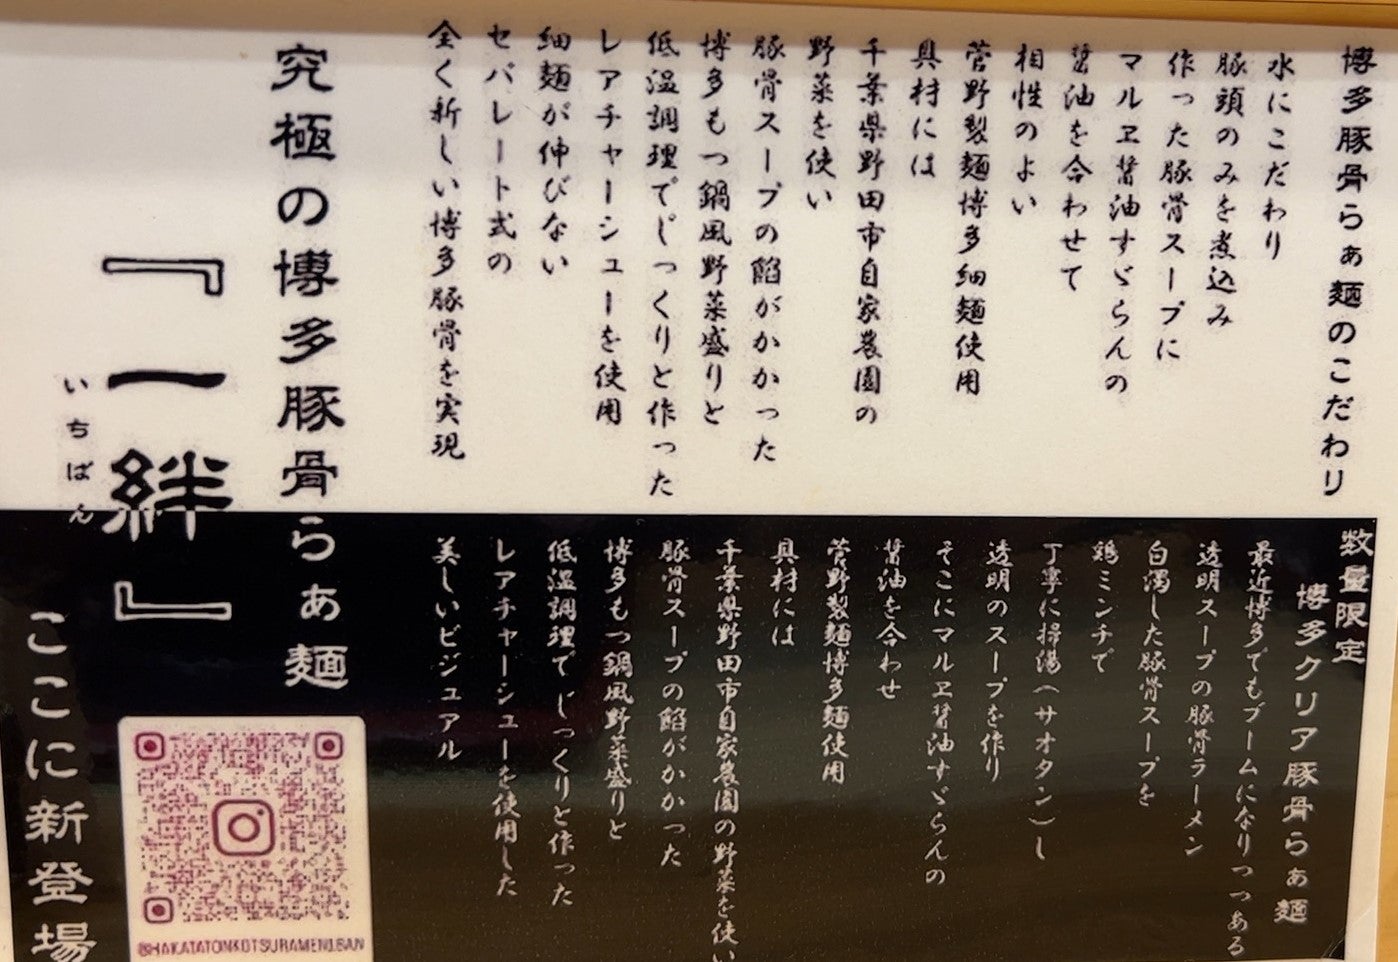 博多豚骨らぁ麺のこだわり
水にこだわり
豚頭のみを煮込み
作った豚骨スープに
マルヱ醤油すゞらんの
醤油を合わせて
相性のよい
菅野製麺博多細麺使用
具材には
千葉県野田市自家農園の
野菜を使い
豚骨スープの餡がかかった
博多もつ鍋風野菜盛りと
低温調理でじっくりと作った
レアチャーシューを使用
細麺が伸びない
セパレート式の
全く新しい博多豚骨を実現
究極の博多豚骨らぁ麺
『一絆』
いちばん
ここに新登場
数量限定
博多クリア豚骨らぁ麺
最近博多でもブームになりつつある
透明スープの豚骨ラーメン
白濁した豚骨スープを
鶏ミンチで
丁寧に掃湯(サオタン)し
透明のスープを作り
そこにマルヱ醤油すゞらんの
醤油を合わせ
菅野製麺博多麺使用
具材には
千葉県野田市自家農園の野菜を使い
豚骨スープの餡がかかった
博多もつ鍋風野菜盛りと
低温調理でじっくりと作った
レアチャーシューを使用した
美しいビジュアル
@HAKATATONKOTSURAMEN1.BAN